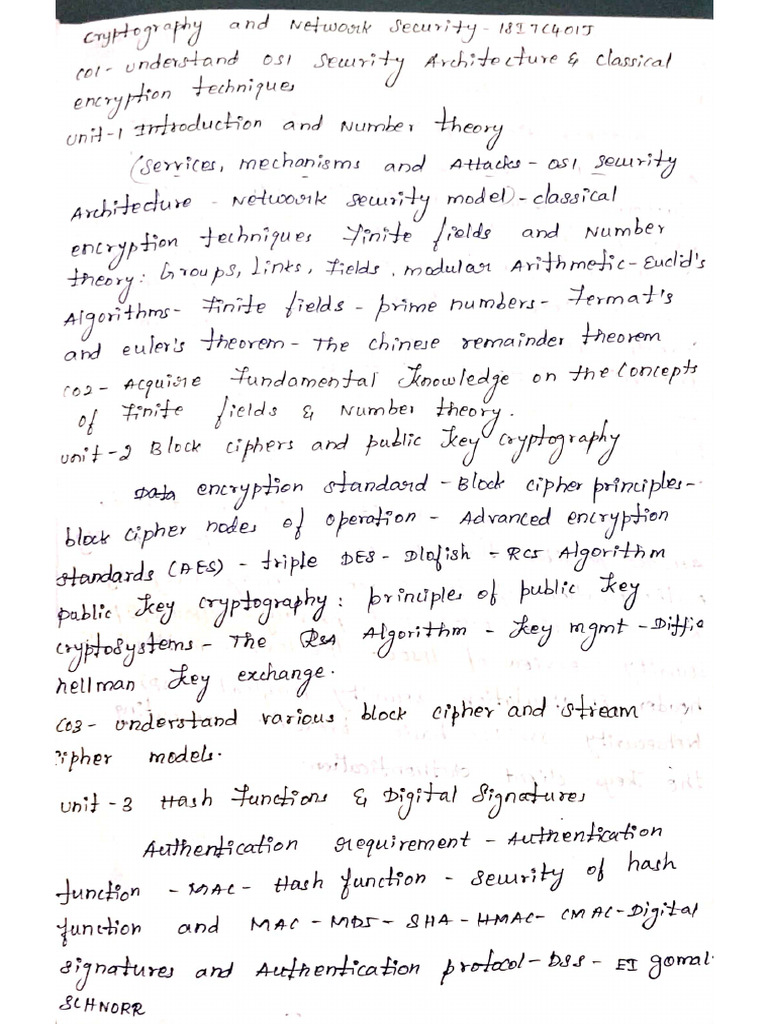 Cryptography and Network Security - 18ITC401J
CO1 - Understand OSI Security Architecture & Classical
encryption techniques
Unit-1 Introduction and Number theory
(Services, mechanisms and Attacks - OSI security
Architecture - Network security model) - classical
encryption techniques Finite fields and Number
theory: Groups, Links, Fields, modular Arithmetic - Euclid's
Algorithms - Finite fields - prime numbers - Fermat's
and euler's theorem - The chinese remainder theorem
CO2 - Acquire Fundamental Knowledge on the Concepts
of Finite fields & Number theory.
Unit-2 Block ciphers and public Key cryptography
Data encryption standard - Block cipher principles -
block cipher nodes of operation - Advanced encryption
standards (AES) - triple DES - Dlofish - RC5 Algorithm
public Key cryptography: principles of public Key
cryptosystems - The RSA Algorithm - Key mgmt - Diffie
hellman Key exchange.
CO3 - Understand various block cipher and stream
cipher models.
Unit-3 Hash Functions & Digital Signatures
Authentication requirement - Authentication
function - MAC - Hash function - Security of hash
function and MAC - MD5 - SHA - HMAC - CMAC - Digital
signatures and Authentication protocol - DSS - EI gomal
SCHNORR